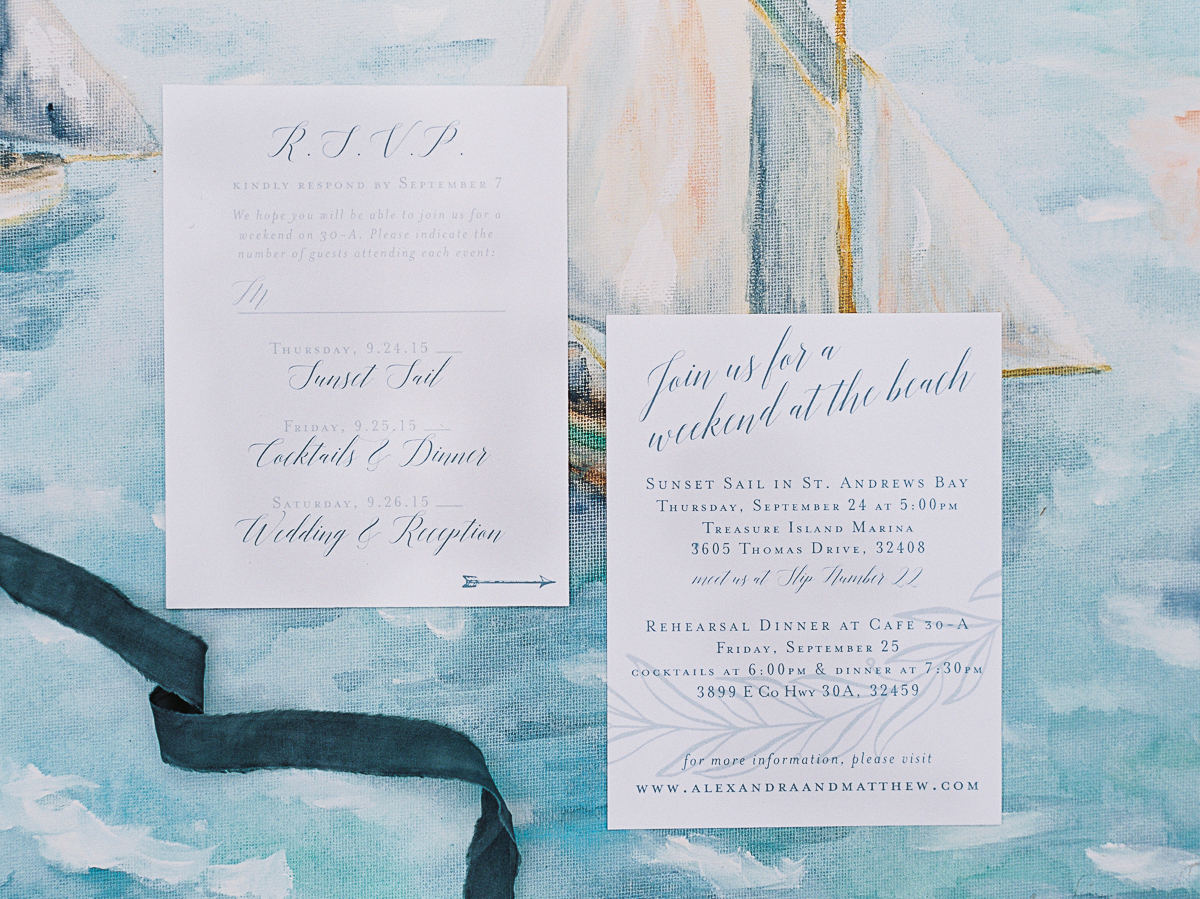 R.S.V.P.
KINDLY RESPOND BY SEPTEMBER 7
We hope you will be able to join us for a
weekend on 30-A. Please indicate the
number of guests attending each event:
M
THURSDAY, 9.24.15 __
Sunset Sail
FRIDAY, 9.25.15 __
Cocktails & Dinner
SATURDAY, 9.26.15 __
Wedding & Reception
Join us for a
weekend at the beach
SUNSET SAIL IN ST. ANDREWS BAY
THURSDAY, SEPTEMBER 24 AT 5:00PM
TREASURE ISLAND MARINA
3605 THOMAS DRIVE, 32408
meet us at Slip Number 22
REHEARSAL DINNER AT CAFE 30-A
FRIDAY, SEPTEMBER 25
COCKTAILS AT 6:00PM & DINNER AT 7:30PM
3899 E CO HWY 30A, 32459
for more information, please visit
WWW.ALEXANDRAANDMATTHEW.COM